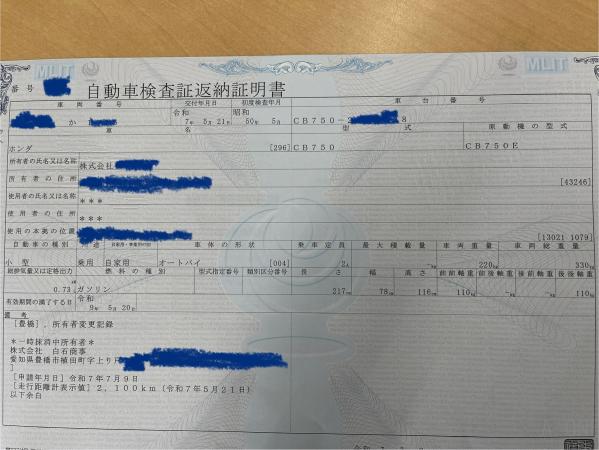 MLIT
MLIT
番号
自動車検査証返納証明書
車両番号 交付年月日 初度検査年月 車台番号
令和 昭和
か 7年 5月 21日 50年 5月 CB750-
車名 型式 原動機の型式
ホンダ [296] CB750 CB750E
所有者の氏名又は名称 株式会社
所有者の住所 [43246]
使用者の氏名又は名称 ***
使用者の住所 ***
使用の本拠の位置 [13021 1079]
自動車の種別 自家用・事業用の別 車体の形状 乗車定員 最大積載量 車両重量 車両総重量
小型 乗用 自家用 オートバイ [004] 2人 -kg 220kg 330kg
総排気量又は定格出力 燃料の種別 型式指定番号 類別区分番号 長さ 幅 高さ 前前軸重 前後軸重 後前軸重 後後軸重
0.73 ガソリン 217cm 78cm 116cm 110kg -kg -kg 110kg
有効期間の満了する日 令和
9年 5月 20日
備考
[豊橋],所有者変更記録
*一時抹消中所有者*
株式会社 白石商事
愛知県豊橋市植田町字上り
]
[申請年月日]令和7年7月9日
[走行距離計表示値]2,100km(令和7年5月21日)
以下余白